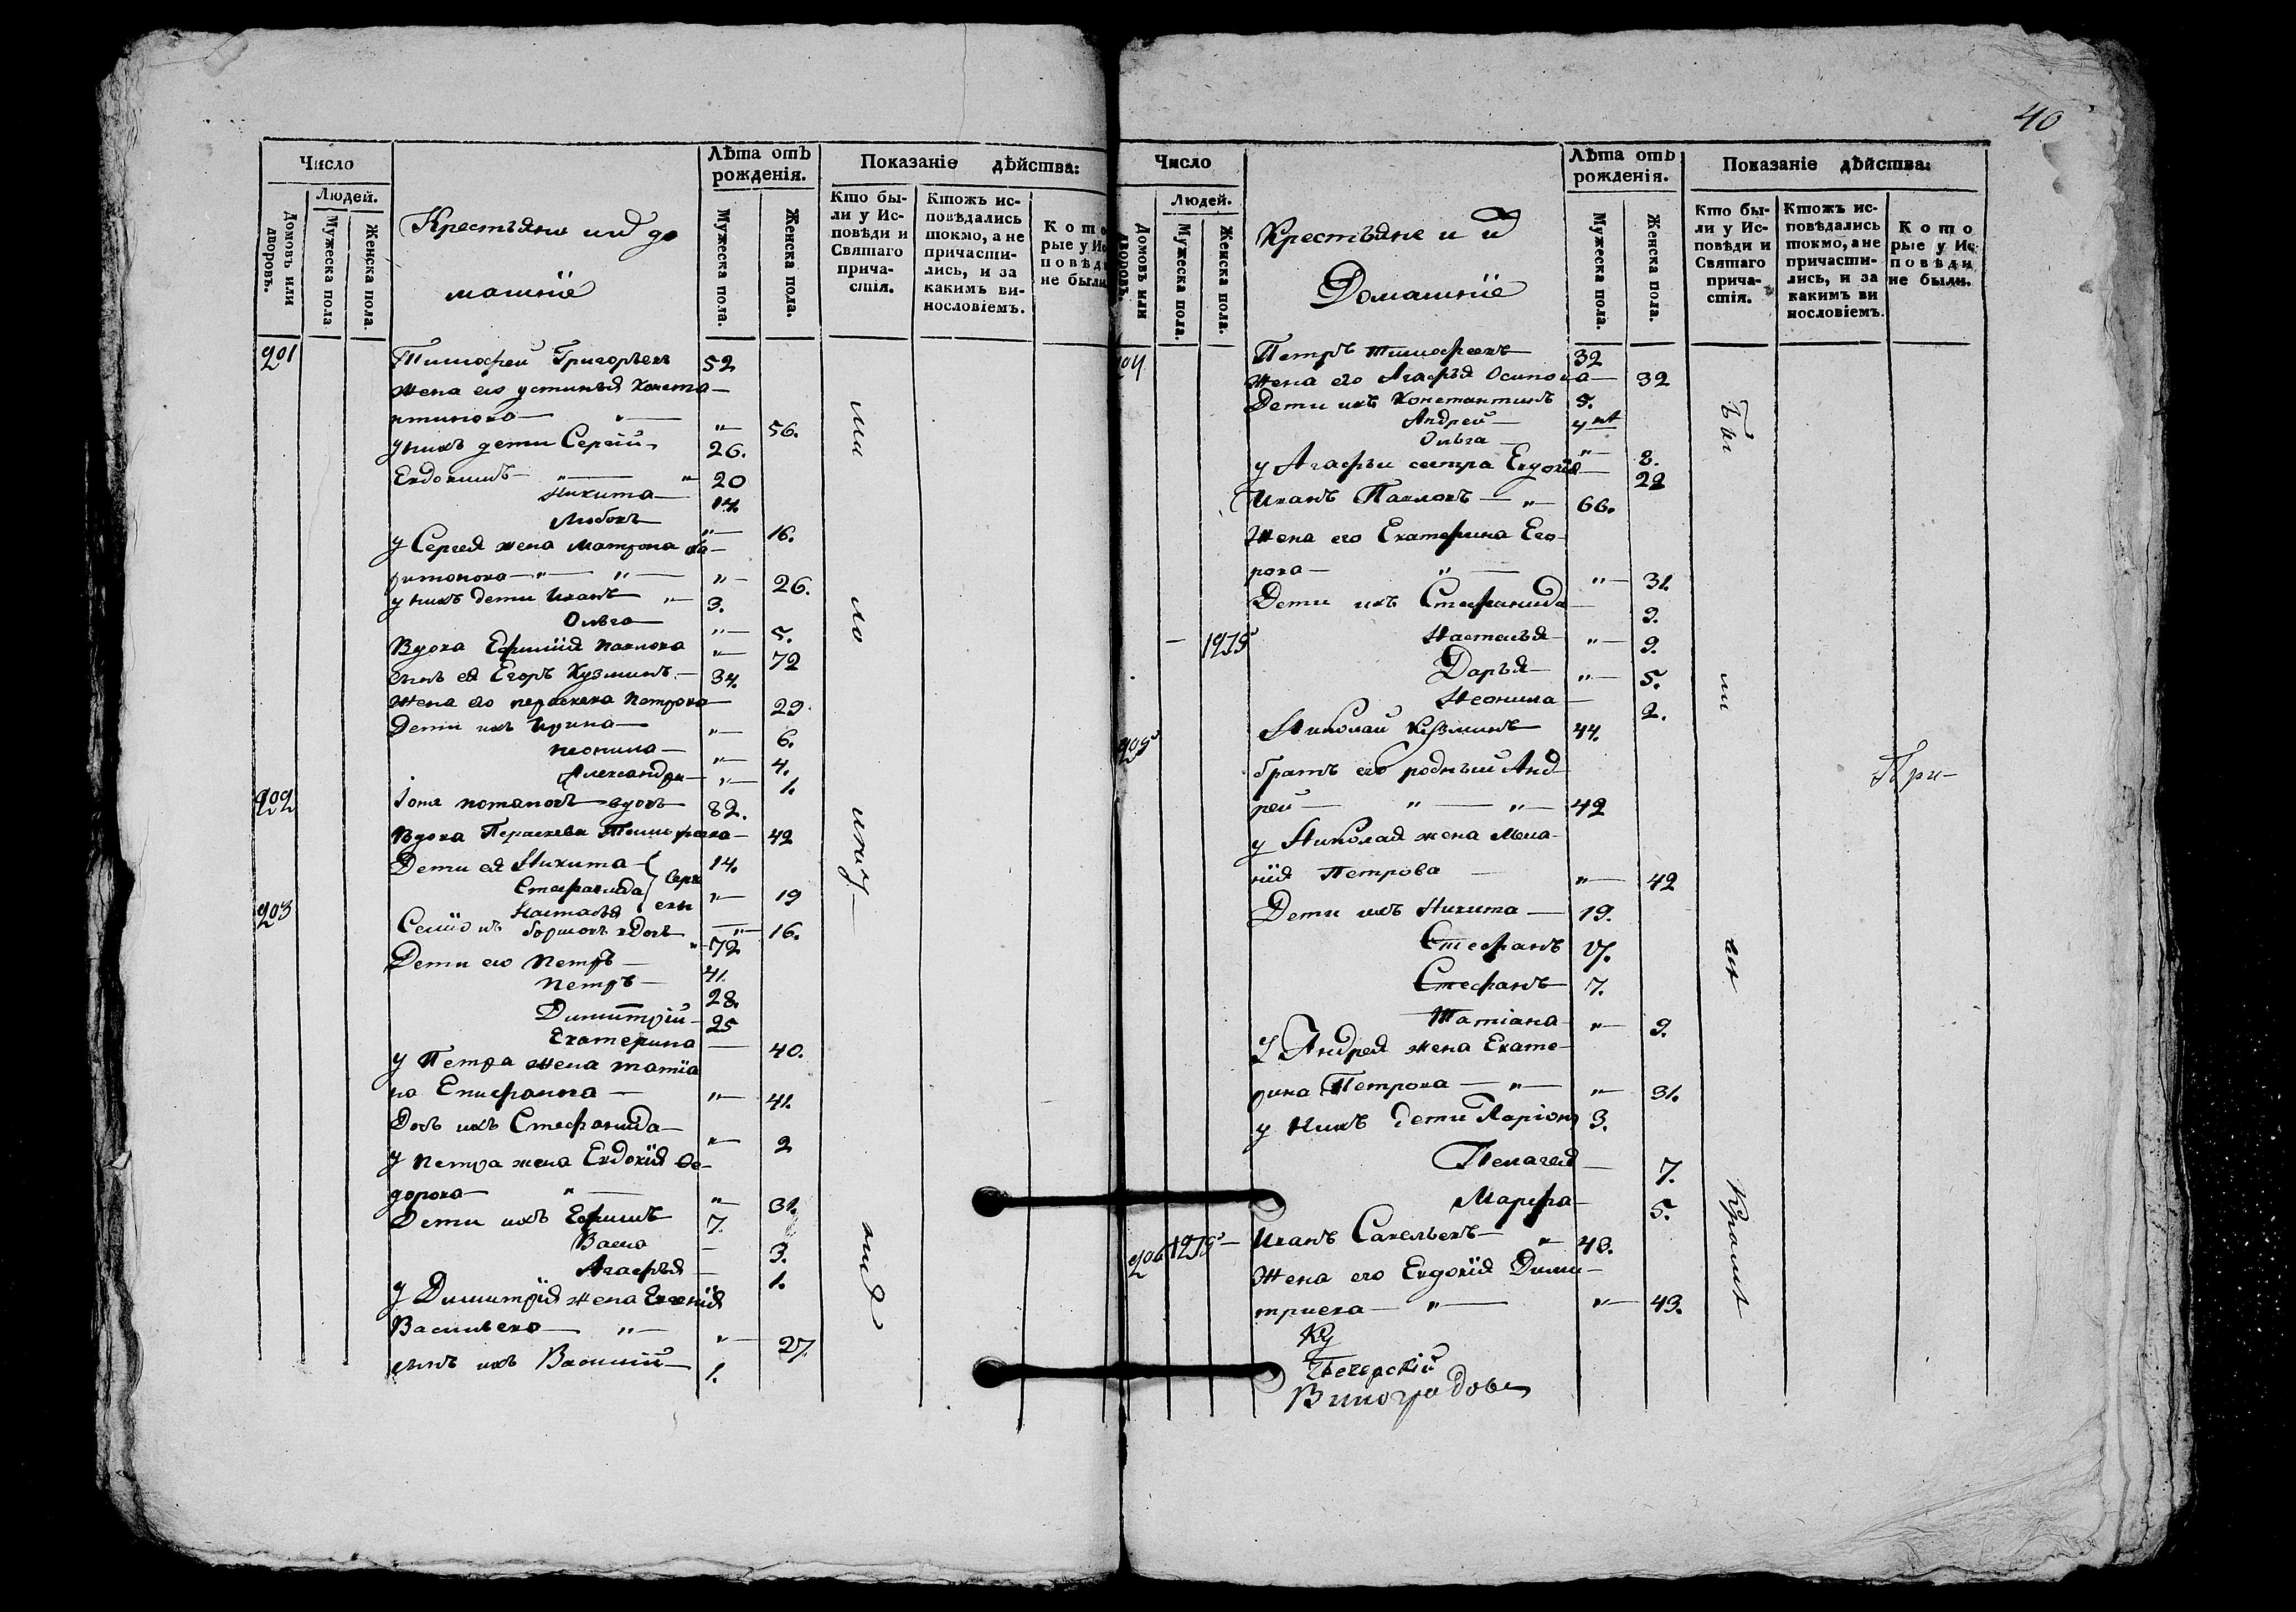 40
Число
Людей.
Домовъ или дворовъ.
Мужеска пола
Женска пола.
Крестьяне и ид до
машніе
Лѣта отъ рожденія.
Мужеска пола.
Женска пола.
Показаніе дѣйства:
Кто бы-
ли у Ис-
повѣди и
Святаго
прича-
стія.
Ктожъ ис-
повѣдались
токмо, а не
причасти-
лись, и за
какимъ ви-
нословіемъ.
Кото
рые у Ис
повѣд
не были
201 Тимофей Григорьевъ 52
жена его устинья Конста-
нтинова " 56.
у нихъ дети Сергій 26.
Евдокимъ " " 20
Никита 17.
Любовь " 16.
у Сергея жена Матрона Ха-
ритонова " " " 26.
у нихъ дети Иванъ " 3.
Ольга " 5.
Вдова Ефимія Павлова " 72
сынъ ея Егоръ Кузминъ 34.
жена его параскева Петрова 29.
Дети ихъ Ирина " 6.
неонила " 4.
Александра " 1.
202 Іона потаповъ вдовъ 82.
Вдова Параскева Тимофеева 42
Дети ея Никита 14.
Стефанида " 19
Наталья " 16.
203 вдовъ 72
Дети его Петръ 41.
Петръ 28.
Димитрій 25
Екатерина 40.
у Петра жена татіа
на Епифанова " 41.
Дочь ихъ Стефанида " 2
у Петра жена Евдокія Ѳе-
дорова " " 31.
Дети ихъ Ефимъ 7.
Васса 3.
Агафья 1.
у Димитрія жена Евгенія
Васильева " " 27.
сынъ ихъ Василій 1.
Число
Людей.
Домовъ или дворовъ.
Мужеска пола.
Женска пола.
Крестьяне и и
Домашніе
Лѣта отъ рожденія.
Мужеска пола.
Женска пола.
Показаніе дѣйства:
Кто бы-
ли у Ис-
повѣди и
Святаго
прича-
стія.
Ктожъ ис-
повѣдались
токмо, а не
причасти-
лись, и за
какимъ ви
нословіемъ.
Кото
рые у Ис
повѣди
не были.
204 Петръ Тимофеевъ 32
жена его Агафья Осипова 32
Дети ихъ Константинъ 5.
Андрей
Ольга " 8.
у Агафьи сестра Евдокія 22
Иванъ Павловъ " 66.
Жена его Екатерина Его-
рова " " 31.
Дети ихъ Стефанида 9.
Наталья " 9.
Дарья " 5.
Неонила 2.
205 Николай Кузминъ 44.
братъ его родный Анд-
рей " " 42
у Николая жена Мела-
нія Петрова " 42
Дети ихъ Никита 19.
Стефанъ
Стефанъ 7.
Татіана " 9.
У Андрея жена Екате-
рина Петрова " " 31.
у нихъ дети Ларіонъ 3.
Пелагея 7.
Марфа 5.
206 Иванъ Савельевъ " 43.
Жена его Евдокія Дими-
триева " " 43.
При-
Виноградовъ